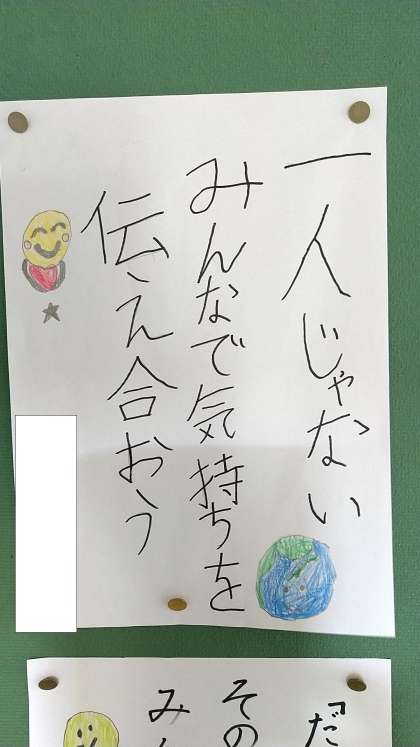 一人じゃない
みんなで気持ちを
伝え合おう
「だ
その
み